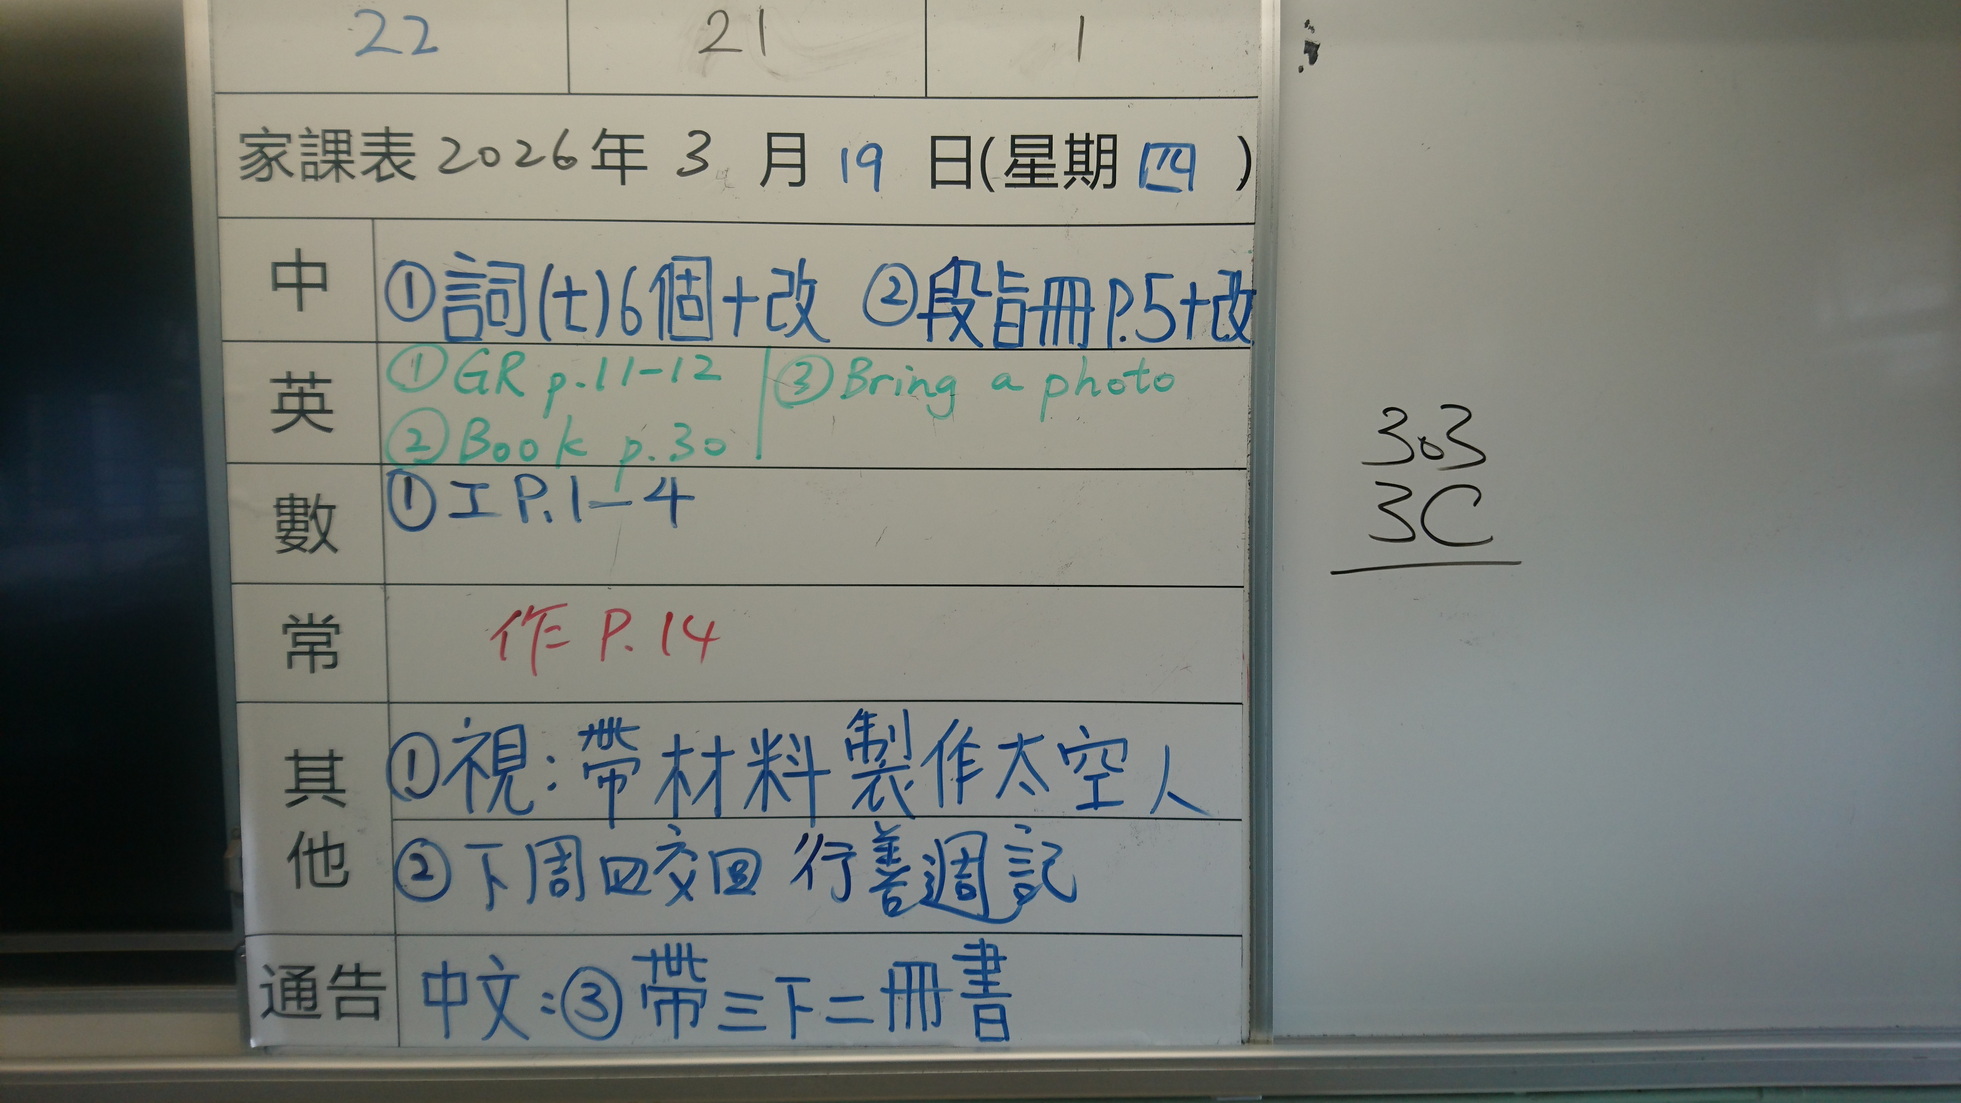 22 21 1
家課表 2026年 3月 19日(星期四)
中 ①詞(七)6個+改 ②段旨冊P.5+改
英 ①GR p.11-12 ③Bring a photo
②Book p.30
數 ①工P.1-4
常 作 P.14
其他 ①視:帶材料製作太空人
②下周四交回 行善週記
通告 中文:③帶三下二冊書
303
3C